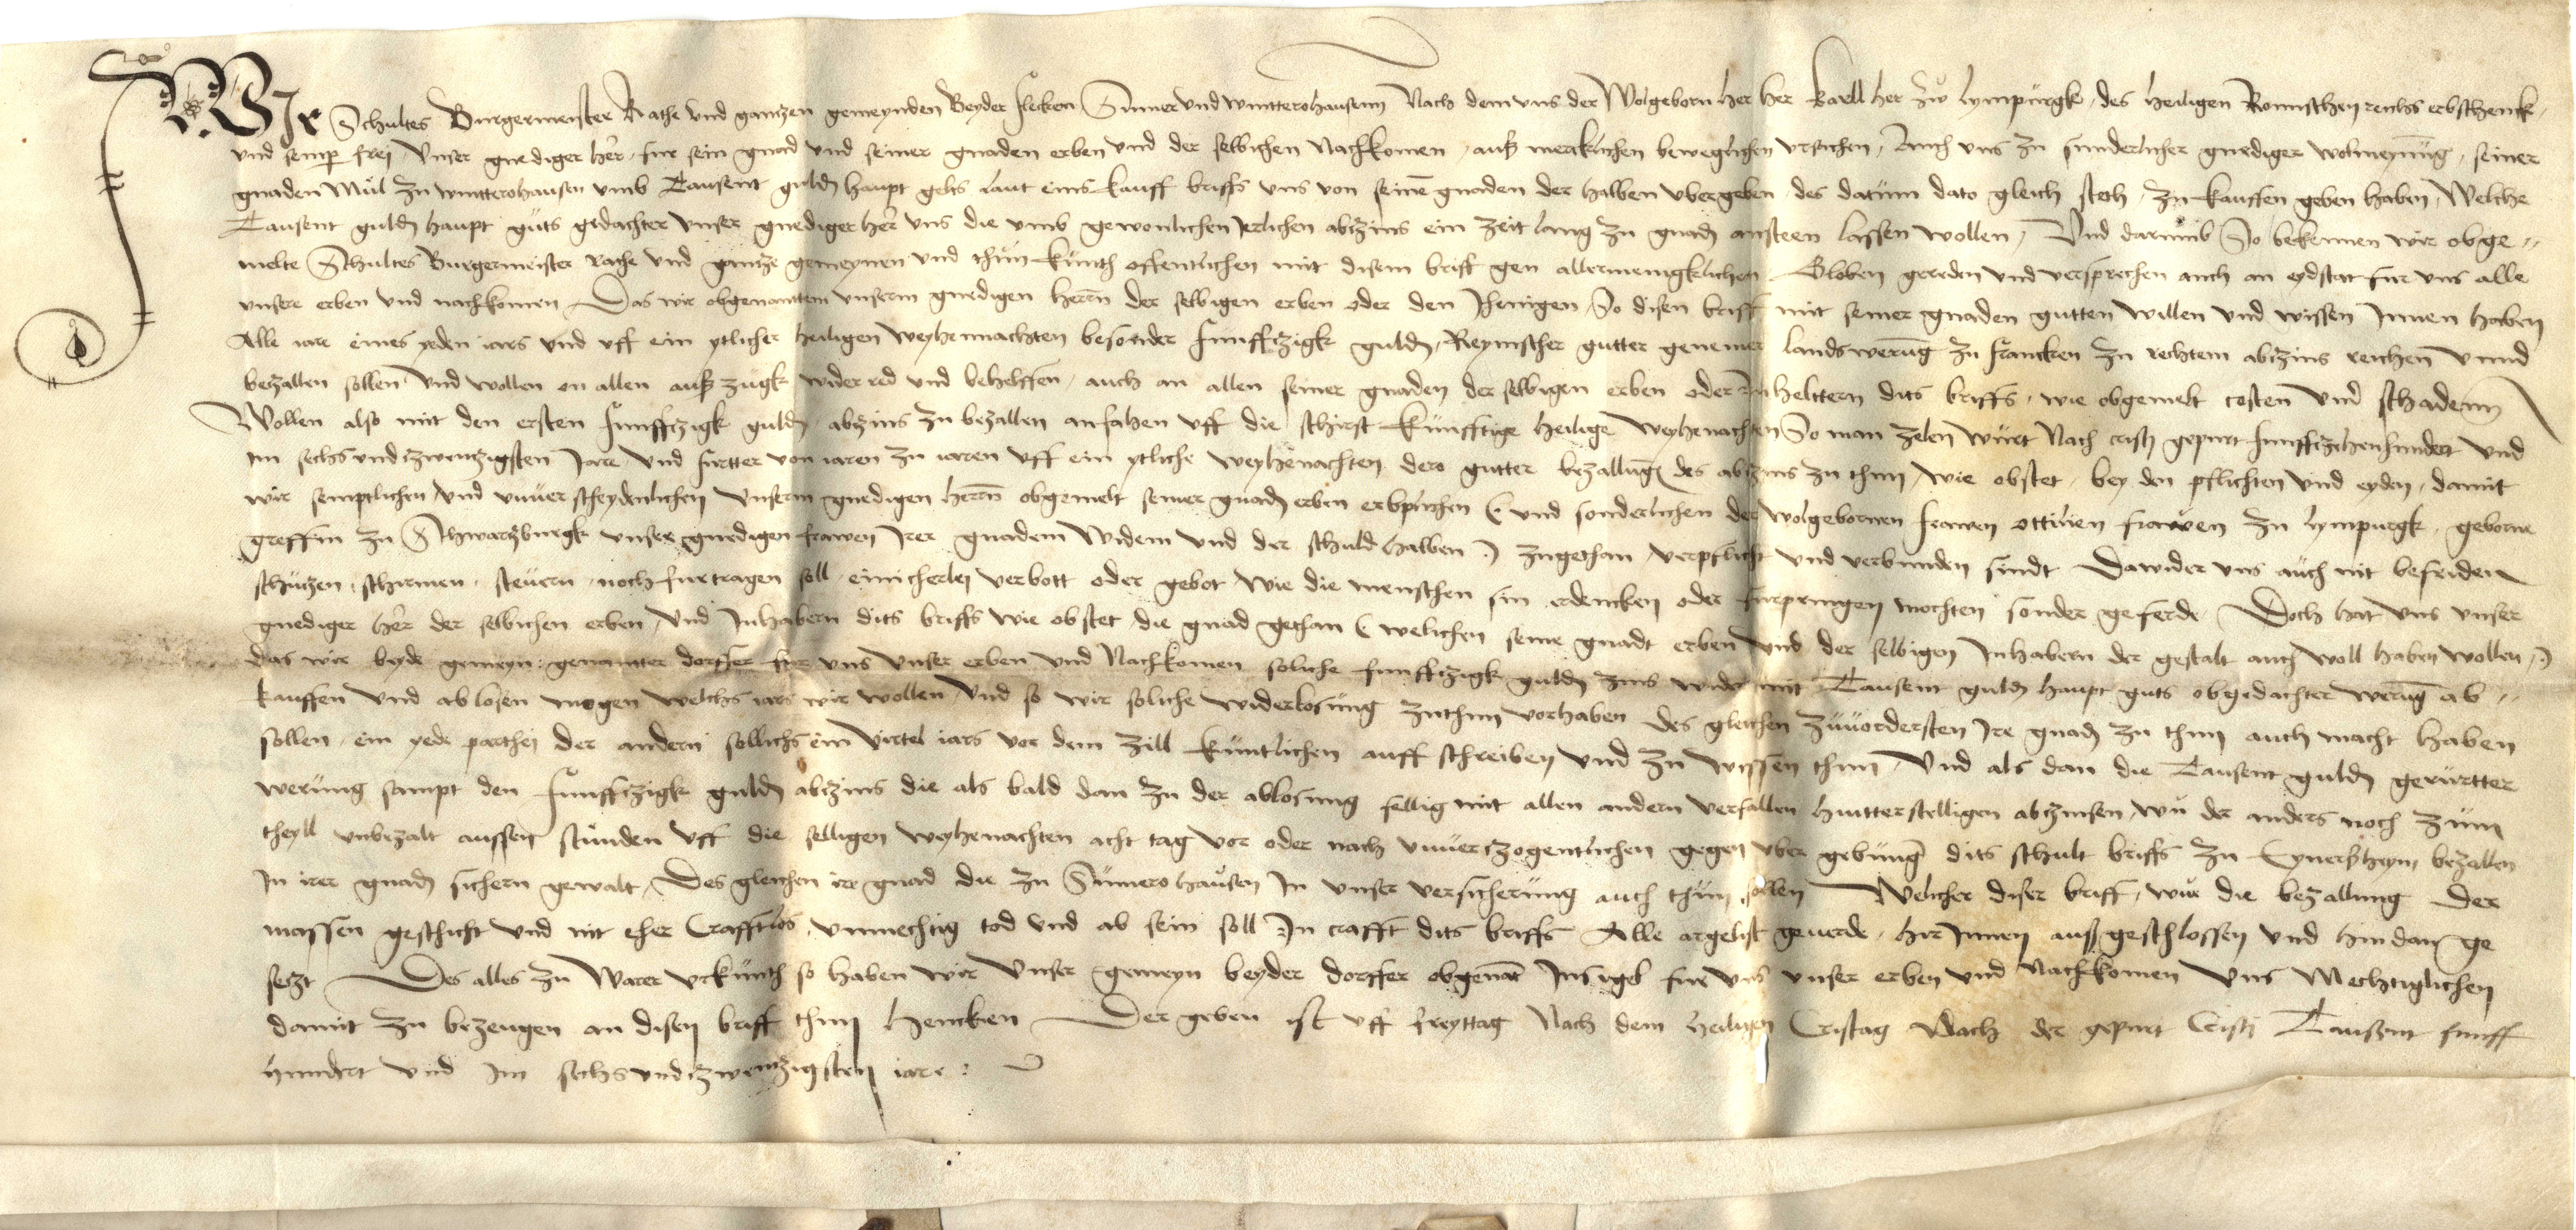 Wir Schultes Burgermeister Rathe vnd gantzen gemeynden Beyder flecken Summer vnd wintterohausenn Nach dem vns der Wolgeborn her her Karll her zw lympurgk, des heiligen Romischen reichs erbschenck,
vnd semper frei, Vnser gnediger her, fur sein gnad vnd seiner gnaden erben vnd der selbichen Nachkomen, auß mercklichen beweglichen vrsachen, Auch vns zu sunderlicher gnediger wolmeynung, seiner
gnaden Mul zu wintterohausen vmb Tausent guldn haupt gelts laut eins kauff briffs vns von seinen gnaden der halben vbergeben, des datum dato gleich stech, zu kauffen geben haben, Welche
Tausent guldn haupt guts gedachter vnser gnediger her vns die vmb gewonlichen Jerlichen abzins ein zeit lang zu gnadn ansteen lassen wollen, Vnd darumb So bekennen wir obge-
melte Schultes Burgermeister rathe vnd gantze gemeynen vnd thun kunth offentlichen mit disem briff gen allermenigklichen Globen gereden vnd versprechen auch an eydstat fur vns alle
vnsere erben vnd nachkomen Das wir obgenanttem vnserm gnedigen herrn der selbigen erben oder den Jhenigen So disen briff mit seiner gnaden gutten willen vnd wissen Innen haben
Alle iare eines yeden iars vnd vff ein ytlicher heiligen weyhennachten besonder funffczigk guldn, Reynischer gutter genemer landswerung zu francken zu rechtem abzins reichen vnnd
bezallen sollen vnd wollen on allen auß zugk wider red vnd behelffen, auch an allen seiner gnaden der selbigen erben oder Inhelttern dits briffs, wie obgemelt costen vnd schadenn
Wollen also mit den ersten funffczigk guldn, abzins zu bezallen anfahen vff die schirst kunfftige heilige weyhenachten So man zelen wurt Nach cristi gepurt funffczehenhundert vnd
im sechs vnd zwentzigsten Jare vnd furtter von iaren zu iaren vff ein ytliche weyhenachten dero gutter bezallung des abzins zu thun, wie obstet, bey den pflichten vnd eyden, damit
wir semptlichen vnd vnuerscheydenlichen vnserm gnedigen herrn obgemelt seiner gnadn erben erbplichen (vnd sonderlichen der wolgebornen frawen ottilien frawen zu lympurgk, geborne
greffin zu Schwarzburgk vnser gnedigen frawen Jrer gnadenn Widem vnd der schuld halben) zugethan, verpflicht vnd verbunden sindt Dawider vns auch nit befreiden
schutzen, schirmen, steuern, noch furtragen soll, einicherlej verbott oder gebot wie die menschen sin erdencken oder furpringen mochten sonder geferde Doch hat vns vnser
gnediger her der selbichen erben, vnd Inhabern dits briffs wie obstet, die gnad gethan (welichen seine gnadt erben vnd der selbigen Inhabern der gestalt auch woll haben wollen,)
das wir beyde gemeyn genanter dorffer fur vns vnser erben vnd Nachkomen soliche funffczigk guldn zins wider mit Tausent guldn haupt guts obgedachter werung ab-
kauffen vnd ablosen mogen welchs iars wir wollen, vnd so wir soliche widerlosung zuthun vorhaben des gleichen zuuordersten Ire gnadn zu thun auch macht haben
sollen, ein yede parthej der andern sollichs ein virtel iars vor dem zill kuntlichen auff schreiben vnd zu wissen thun, Vnd als dan die Tausent guldn gerurtter
werung sampt den funffczigk guldn abzins die als bald dan zu der ablosung fellig mit allen andern verfallen hintterstelligen abzinsen, wu der anders noch zum
theyll vnbezalt aussen stunden vff die selligen weyhenachten acht tag vor oder nach vnuerzogentlichen gegen vber gebung dits schult briffs zu Eynersheym bezallen
In irer gnadn sichern gewalt, Des gleichen irr gnad die zu Sumerohausen In vnser versicherung auch thun sollen Welicher diser briff, wur die bezallung der
massen geschicht vnd nit eher Crafftlos, vnmechtig tod vnd ab sein soll In crafft dits briffs Alle argelist geuerde, hir Innen auß geschlossen vnd hindan ge
setzt Des alles zu Warer vrkunth so haben wir Vnser gemeyn beyder dorffer obgenant Insigel fur vns vnser erben vnd Nachkomen Vns Mechtiglichen
damit zu bezeugen an disen briff thun hencken Der geben ist vff freyttag Nach dem heiligen Cristag Nach der gepurt Cristj Tausent funff
hundert vnd Im sechs vnd zwentzigsten iare: